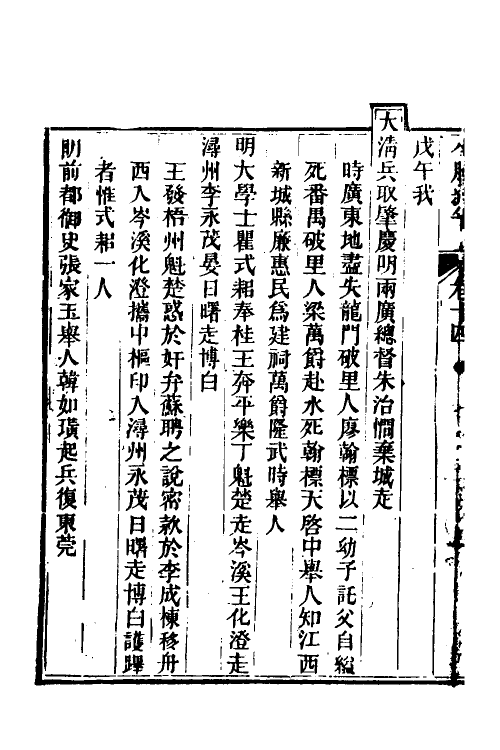 戊午我
大清兵取肇慶明兩廣總督朱治㵎棄城走
時廣東地盡失龍門破里人廖翰標以二幼子託父自縊
死番禺破里人梁萬爵赴水死翰標天啓中舉人知江西
新城縣廉惠民爲建祠萬爵隆武時舉人
明大學士瞿式耜奉桂王奔平樂丁魁楚走岑溪王化澄走
潯州李永茂晏日曙走博白
王發梧州魁楚惑於奸弁蘇聘之說密款於李成棟移舟
西入岑溪化澄攜中樞印入潯州永茂日曙走博白護蹕
者惟式耜一人
明前都御史張家玉舉人韓如璜起兵復東莞